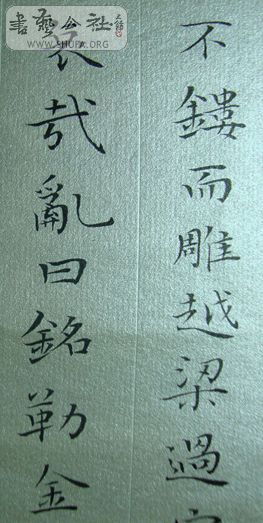 書藝公社
WWW.SHUFA.ORG
不鏤而雕越梁過
哉亂曰銘勒金